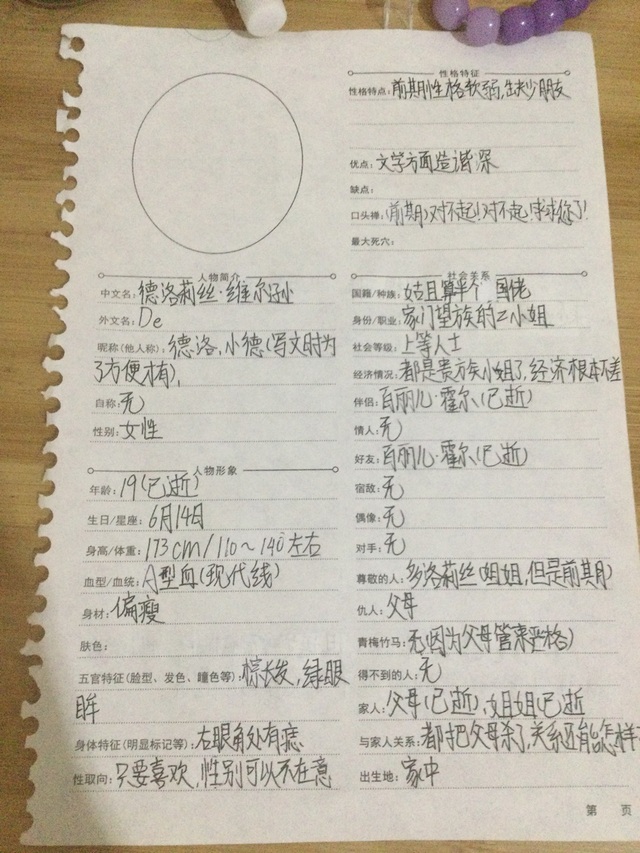 人物简介
中文名:德洛莉丝·维尔
外文名:De
昵称(他人称):德洛,小德(写文时为
了方便才有),
自称:无
性别:女性
人物形象
年龄:19(已逝)
生日/星座:6月14日
身高/体重:173cm/110~140左右
血型/血统:A型血(现代线)
身材:偏瘦
肤色:
五官特征(脸型、发色、瞳色等):棕长发,绿眼
眸
身体特征(明显标记等):右眼角处有痣
性取向:只要喜欢,性别可以不在意
性格特征
性格特点:前期性格软弱,缺少朋友
优点:文学方面造诣深
缺点:
口头禅:前期:对不起!对不起!求求你了!
最大死穴:
社会关系
国籍/种族:姑且算半个 国佬
身份/职业:家门望族的二小姐
社会等级:上等人士
经济情况:都是贵族小姐了,经济根本不差
伴侣:百丽儿·霍尔(已逝)
情人:无
好友:百丽儿·霍尔(已逝)
宿敌:无
偶像:无
对手:无
尊敬的人:多洛莉丝(姐姐,但是前期)
仇人:父母
青梅竹马:无(因为父母管束严格)
得不到的人:无
家人:父母(已逝),姐姐(已逝
与家人关系:都把父母杀了,关系还能怎样
出生地:家中
第 页